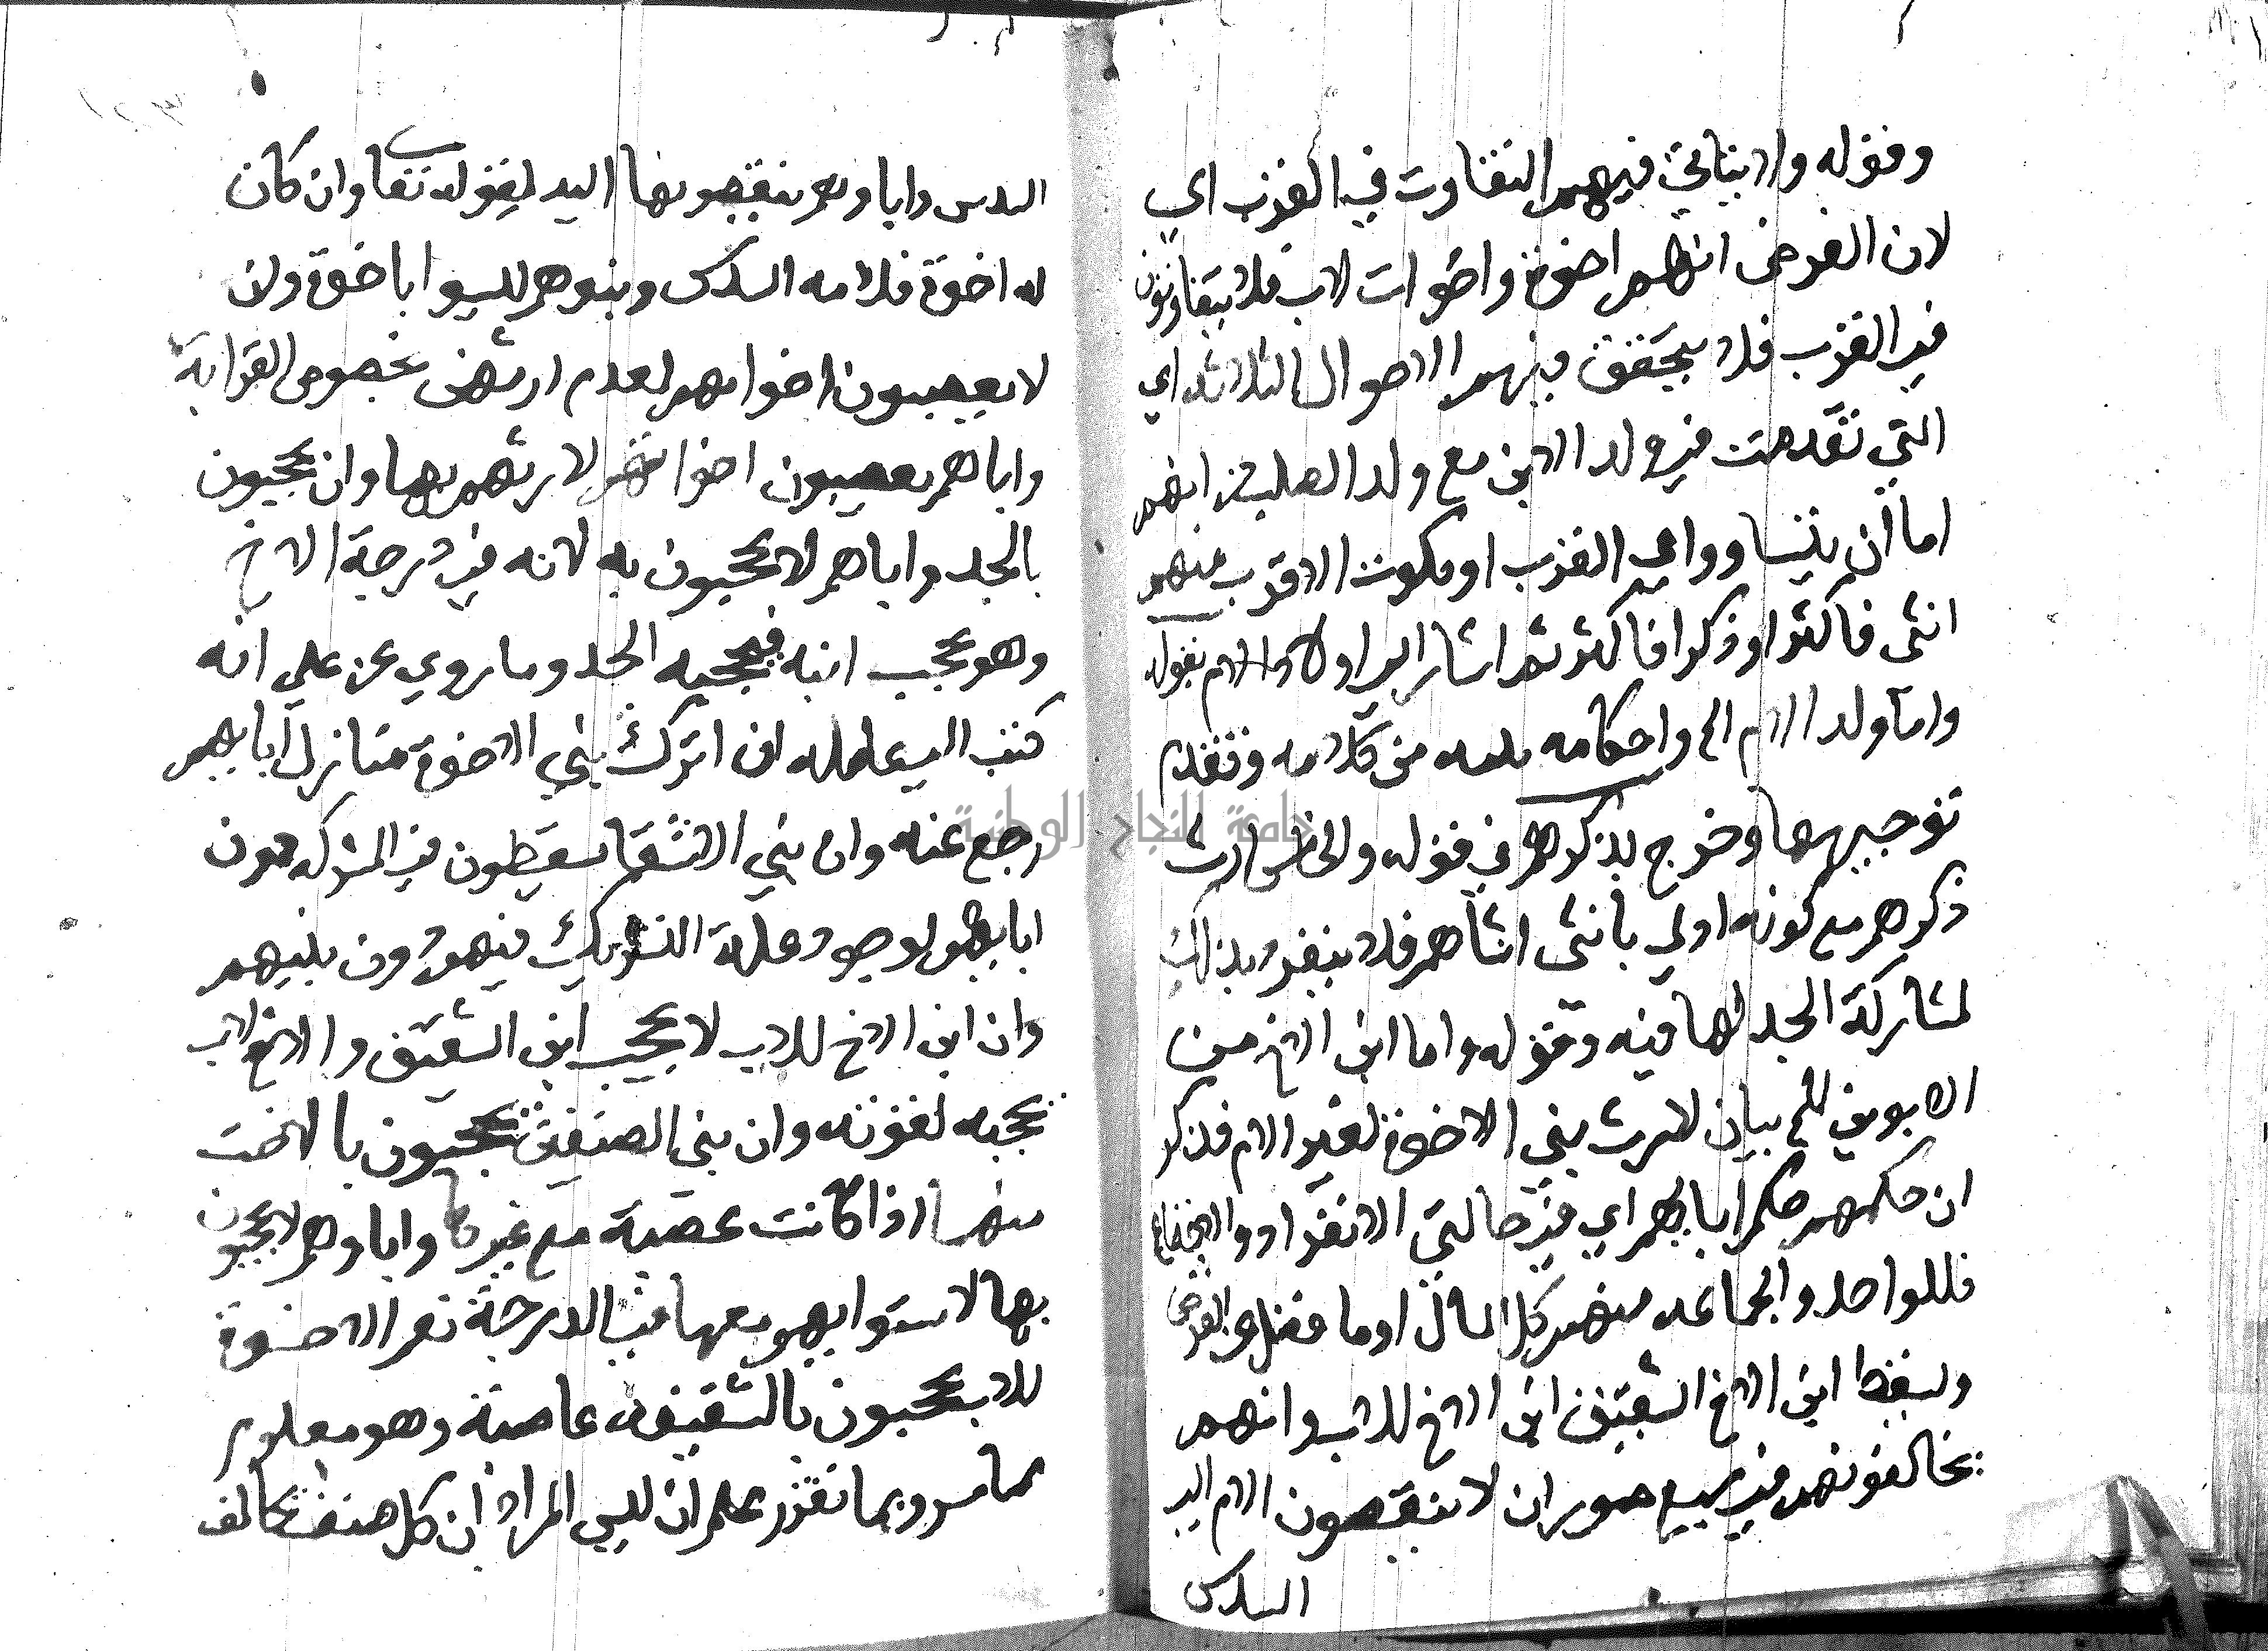 وقوله ولا يتاتي فيهم التفاوت في القرب اي
لان الفرض انهم اخوة واخوات لاب فلا يتفاوتون
في القرب فلا يتحقق فيهم الاحوال الثلاثة اي
التي تقدمت في ولد الابن مع ولد الصلب من انهم
اما ان يتساووا في القرب او يكون الاقرب منهم
انثى فاكثر او ذكرا فاكثر ثم اشار الي اولاد الام بقوله
واما ولد الام الخ واحكامه من كلامه وتقدم
توجيهها وخرج بذكرهم في قوله والخامس ارث
ذكرهم مع كونه ادلي بانثى انثاهم فلا ينفرد بذلك
لمشاركة الجد لها فيه وقوله واما ابن الاخ من
الابوين الخ بيان لارث بني الاخوة لغير الام فذكر
ان حكمهم حكم ابايهم اي في حالتي الانفراد والاجتماع
فللواحد والجماعة منهم كل المال او ما فضل عن الفرض
ويسقط ابن الاخ الشقيق ابن الاخ للاب وانهم
يخالفونهم في سبع صور ان لا ينقصون الام الي
السدس
السدس واباوهم ينقصونها اليه لقوله تعا وان كان
له اخوة فلامه السدس وبنوهم ليسوا باخوة وان
لا يعصبون اخواتهم لعدم ارثهن بخصوص القرابة
واباهم يعصبون اخواتهم لارثهم بها وان يحجبون
بالجد واباهم لا يحجبون به لانه في درجة الاخ
وهو يحجب ابنه فيحجبه الجد وما روي عن علي انه
كتب الي عامله ان اترك بني الاخوة منازل ابايهم
رجع عنه وان بني الاشقا يسقطون في المشركه دون
ابايهم لوجود علة التشريك فيهم دون بنيهم
وان ابن الاخ للاب لا يحجب ابن الشقيق والاخ لاب
يحجبه لقوته وان بني الصنفين يحجبون بالاخت
منهما اذا كانت عصبة مع غيرها واباوهم لا يحجبون
بها لاستوايهم معها في الدرجة نعم الاخوة
للاب يحجبون بالشقيقة عاصبة وهو معلوم
مما مر وبما تقرر علم ان ليس المراد ان كل صنف يخالف
جامعة النجاح الوطنية